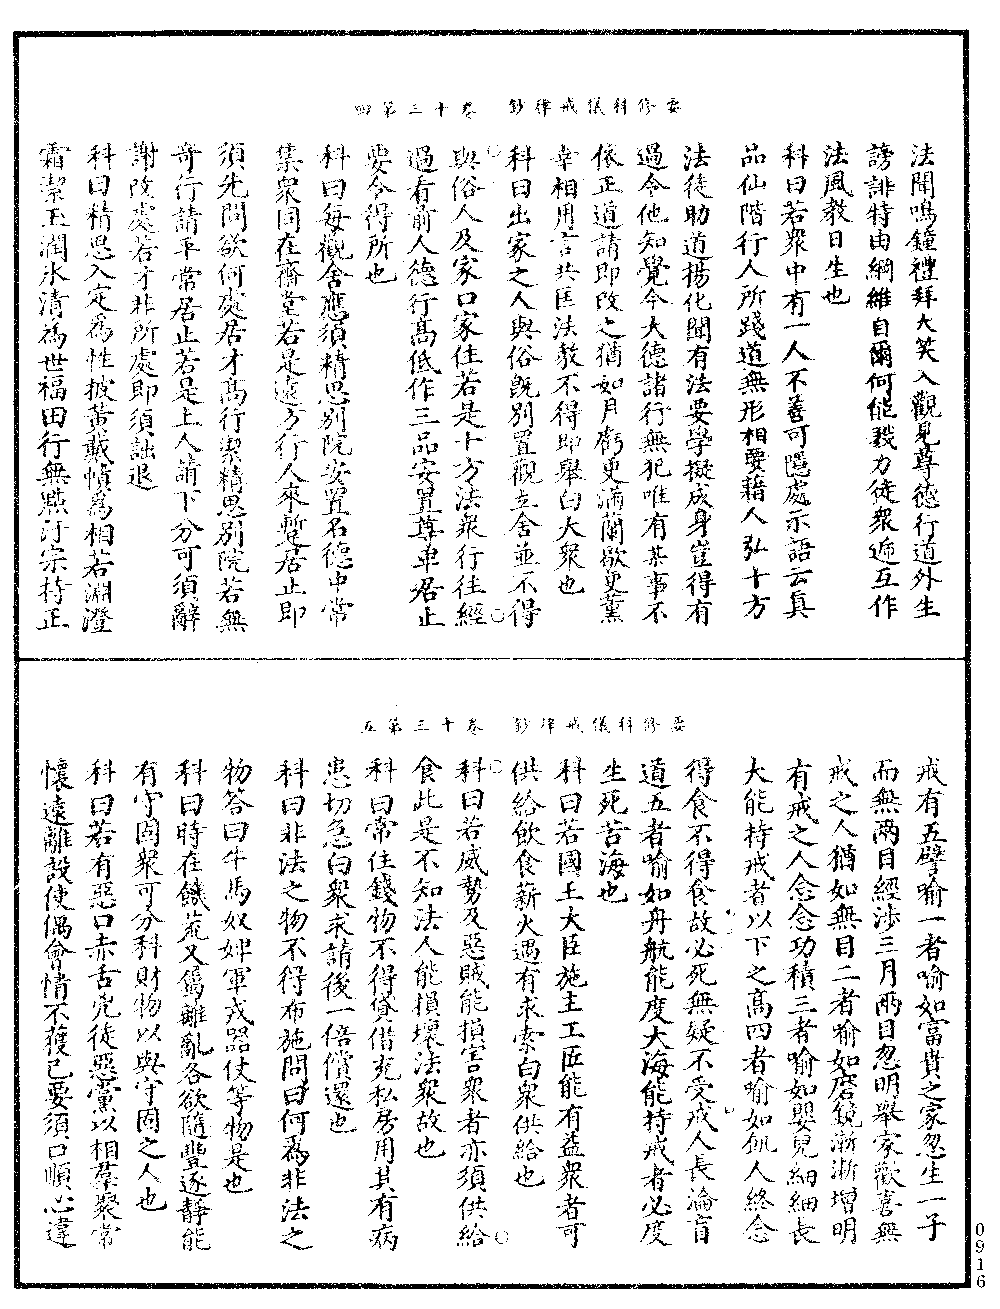 要修科儀戒律鈔　卷十三第四
法聞鳴鐘禮拜大笑入觀見尊德行道外生
謗誹特由綱維自爾何能戮力徒衆遞互作
法風教日生也
科曰若衆中有一人不善可隱處示語云真
品仙階行人所踐道無形相要藉人弘十方
法徒助道揚化闕有法要學擬成身豈得有
過今他知覺今大德諸行無犯唯有某事不
依正道請即改之猶如月虧更滿蘭歇更薰
幸相用言共匡法教不得即舉白大衆也
科曰出家之人與俗既別置觀立舍並不得
與俗人及家口家住若是十方法衆行往經
過看前人德行高低作三品安置尊卑居止
要令得所也
科曰每觀舍應須精思別院安置名德中常
集衆同在齋堂若是遠方行人來暫居止即
須先問欲何處居才高行潔精思別院若無
奇行請平常居止若是上人請下分可須辭
謝改處若才非所處即須詘退
科曰精思入定爲性披黃戴幘爲相若淵澄
霜潔玉潤氷清爲世福田行無點汙宗持正
要修科儀戒律鈔　卷十三第五
戒有五譬喻一者喻如富貴之家忽生一子
而無兩目經涉三月兩目忽明舉家歡喜無
戒之人猶如無目二者喻如磨鏡漸漸增明
有戒之人念念功積三者喻如嬰兒細細長
大能持戒者以下之高四者喻如飢人終念
得食不得食故必死無疑不受戒人長淪盲
道五者喻如舟航能度大海能持戒者必度
生死苦海也
科曰若國王大臣施主工匠能有益衆者可
供給飲食薪火遇有求索白衆供給也
科曰若威勢及惡賊能損害衆者亦須供給
食此是不知法人能損壞法衆故也
科曰常住錢物不得貸借充私房用其有病
患切急白衆求請後一倍償還也
科曰非法之物不得布施問曰何爲非法之
物答曰牛馬奴婢軍戎器仗等物是也
科曰時在饑荒又屬離亂各欲隨豐逐靜能
有守固衆可分科財物以與守固之人也
科曰若有惡口赤舌兇徒惡黨以相羣聚常
懷遠離設使偶會情不獲已要須口順心違
0916